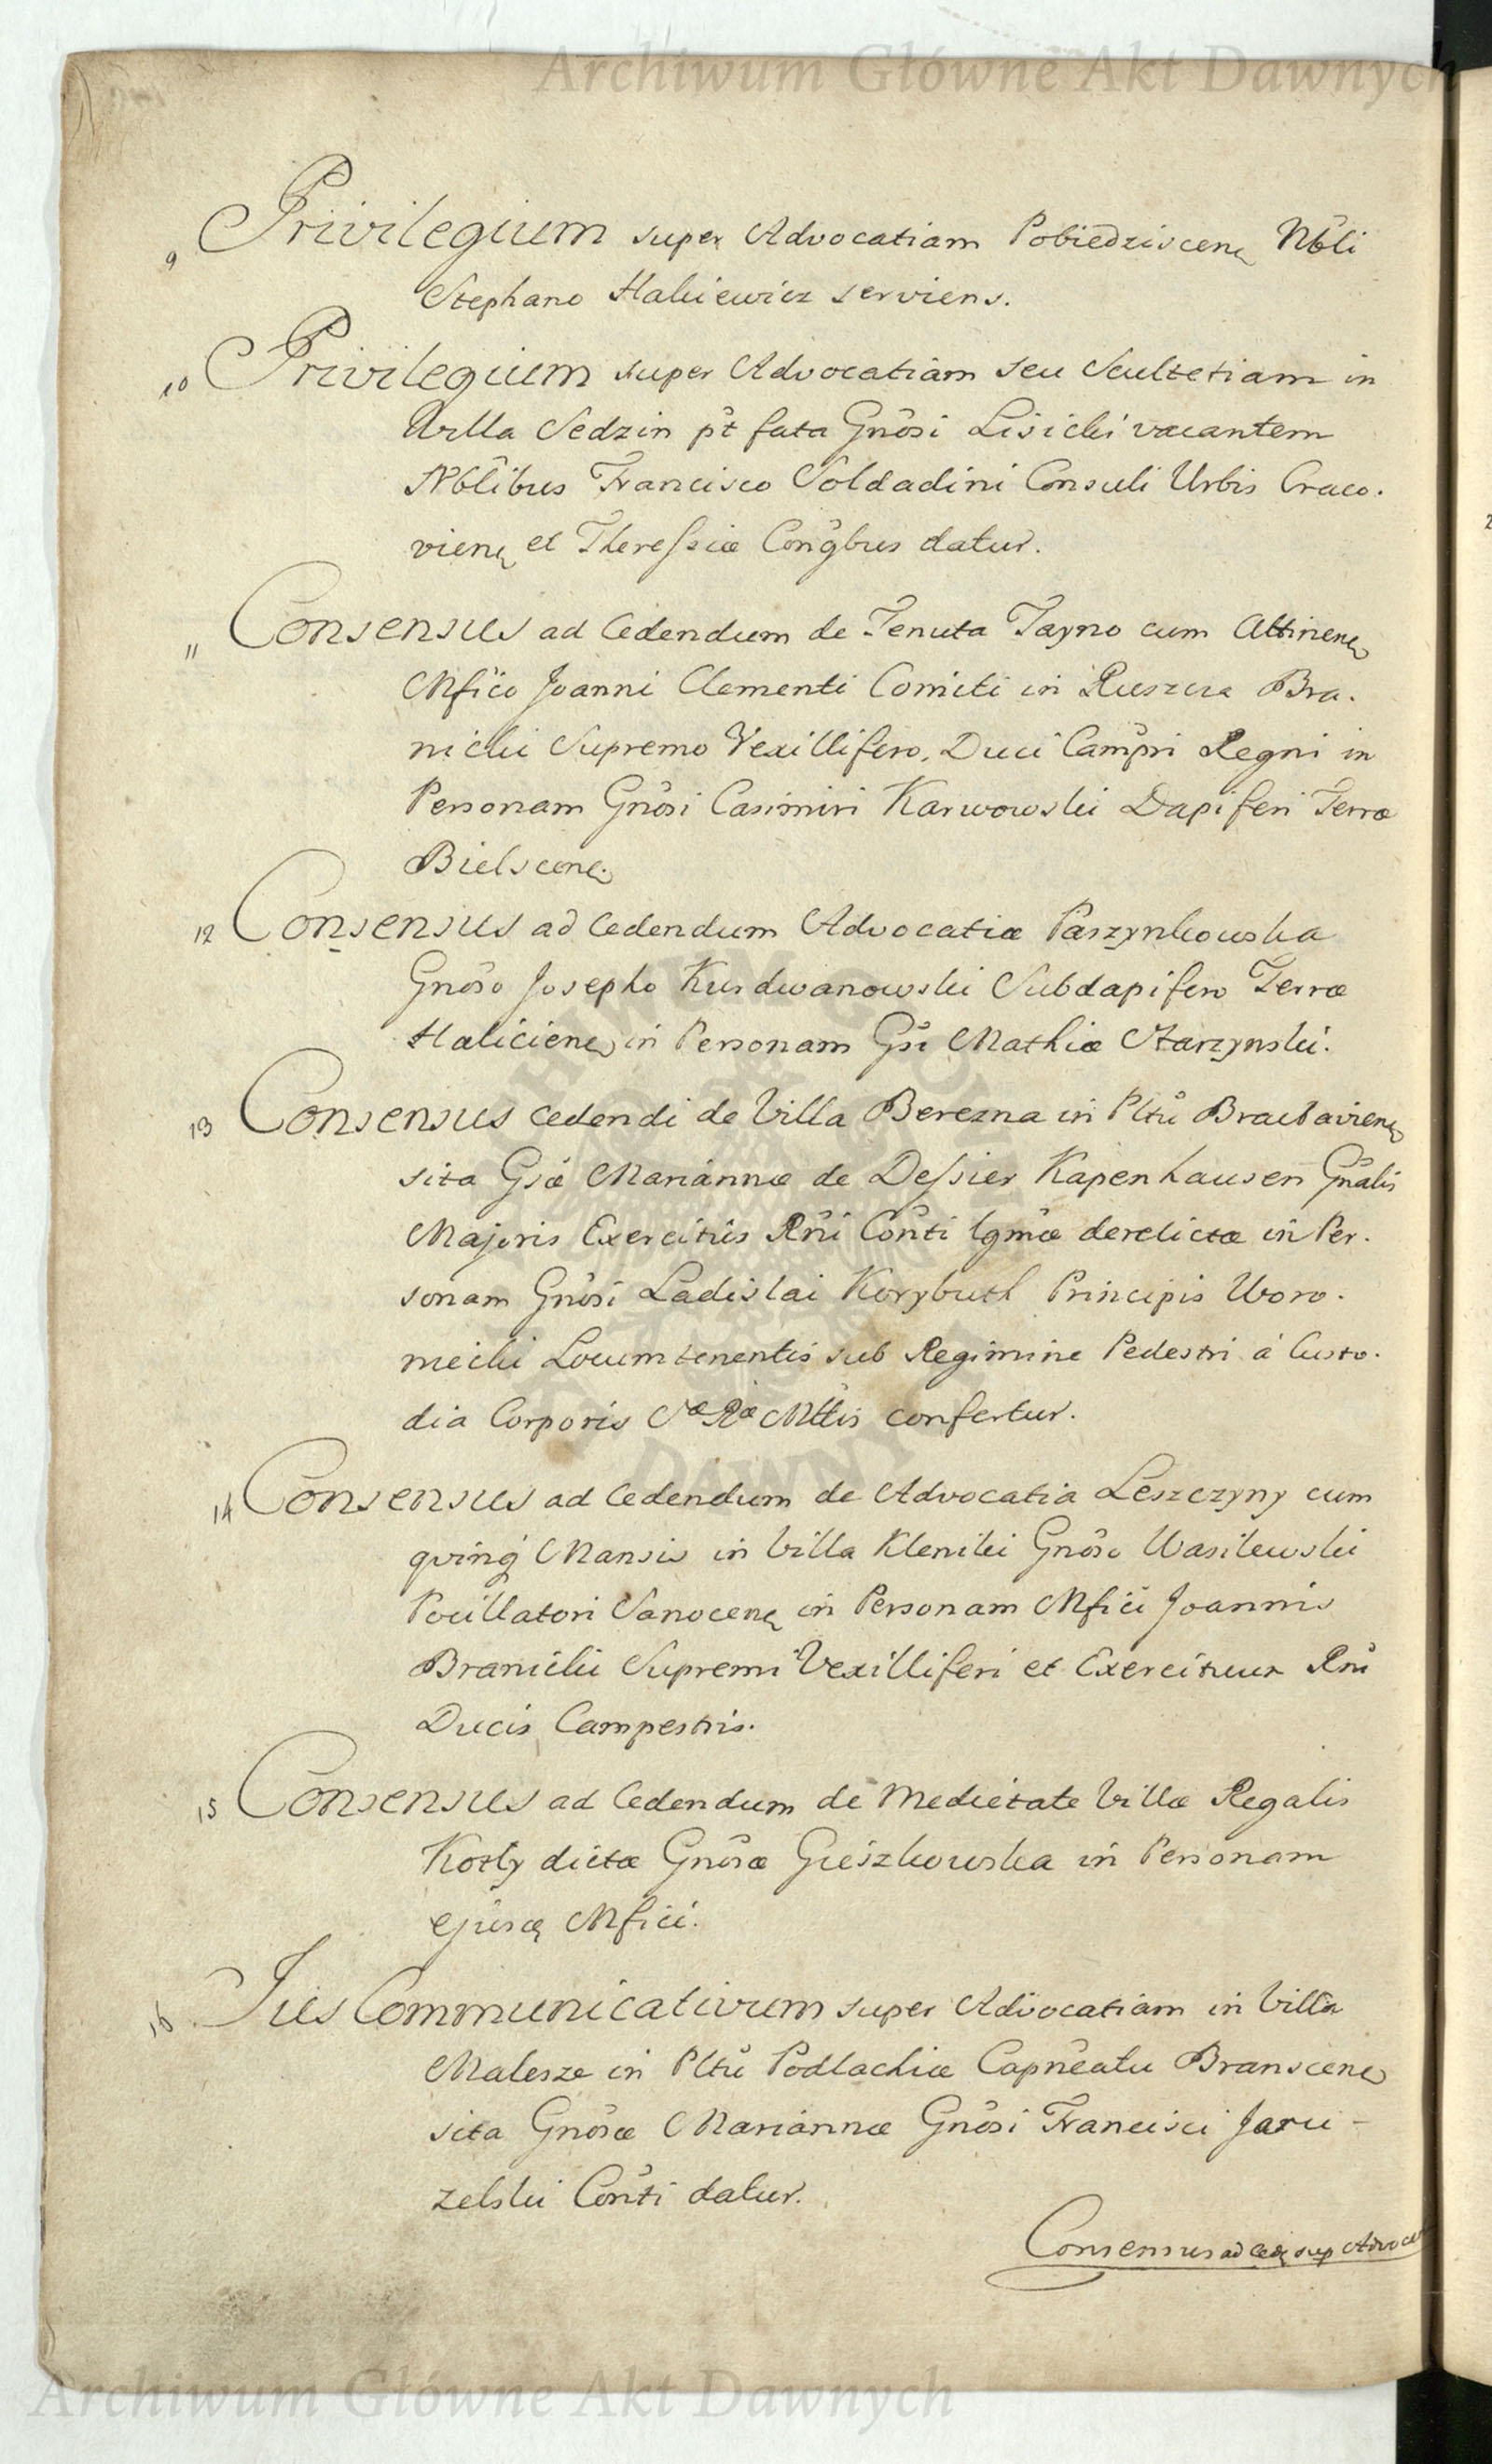 Archiwum Główne Akt Dawnych
9 Privilegium super Advocatiam Pobiedziscen Nobli
Stephano Hakiewicz serviens.
10 Privilegium super Advocatiam seu Scultetiam in
Villa Sedzin pt fata Gnosi Lisicki vacantem
Noblibus Francisco Soldadini Consuli Urbis Craco.
vien et Theressiæ Congbus datur.
11 Consensus ad Cedendum de Tenuta Tayno cum Attinen
Mfico Joanni Clementi Comiti in Ruszcza Bra.
nicki Supremo Vexillifero, Duci Campri Regni in
Personam Gnosi Casimiri Karwowski Dapiferi Terræ
Bielscen.
12 Consensus ad Cedendum Advocatiæ Paszynkowska
Gnoso Josepho Kurdwanowski Subdapifero Terræ
Halicien in Personam Gsi Mathiæ Starzynski.
13 Consensus cedendi de Villa Berezna in Pltu Braclavien
sita Gsæ Mariannæ de Dessier Kapenhausen Gnalis
Majoris Exercitus Rni Conti lgmæ derelictæ in Per.
sonam Gnosi Ladislai Korybuth Principis Woro.
niecki Locumtenentis sub Regimine Pedestri á Custo.
dia Corporis Sæ Ræ Mttis confertur.
14 Consensus ad Cedendum de Advocatia Leszczyny cum
qvinq Mansis in Villa Kleniki Gnoso Wasilewski
Pocillatori Sanocen in Personam Mfici Joannis
Branicki Supremi Vexilliferi et Exercituum Rni
Ducis Campestris.
15 Consensus ad Cedendum de Medietate Villæ Regalis
Kozly dictæ Gnosæ Gieszkowska in Personam
ejusd Mfici.
16 Jus Communicativum super Advocatiam in Villa
Malesze in Pltu Podlachiæ Capneatu Branscen
sita Gnosæ Mariannæ Gnosi Francisci Jaru-
zelski Conti datur.
Consensus ad Ced sup Advocat
Archiwum Główne Akt Dawnych